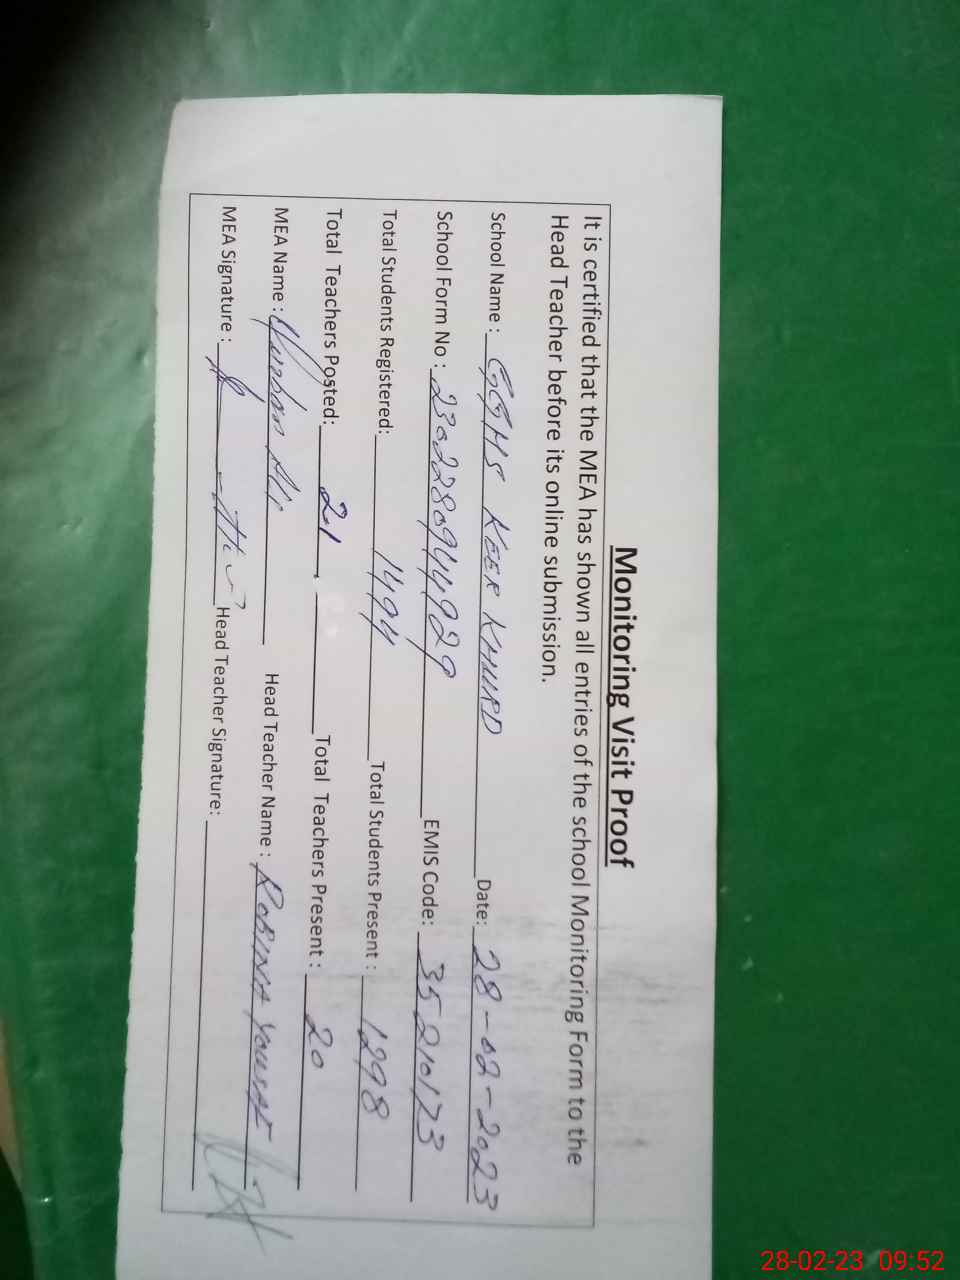 Monitoring Visit Proof
It is certified that the MEA has shown all entries of the school Monitoring Form to the
Head Teacher before its online submission.
School Name : GGHS KEER KHURD Date: 28-02-2023
School Form No : 2302280944929 EMIS Code: 35210173
Total Students Registered: 1494 Total Students Present : 1298
Total Teachers Posted: 21 Total Teachers Present : 20
MEA Name : Ali Head Teacher Name : ROBINA YOUSAF
MEA Signature : Head Teacher Signature:
28-02-23 09:52